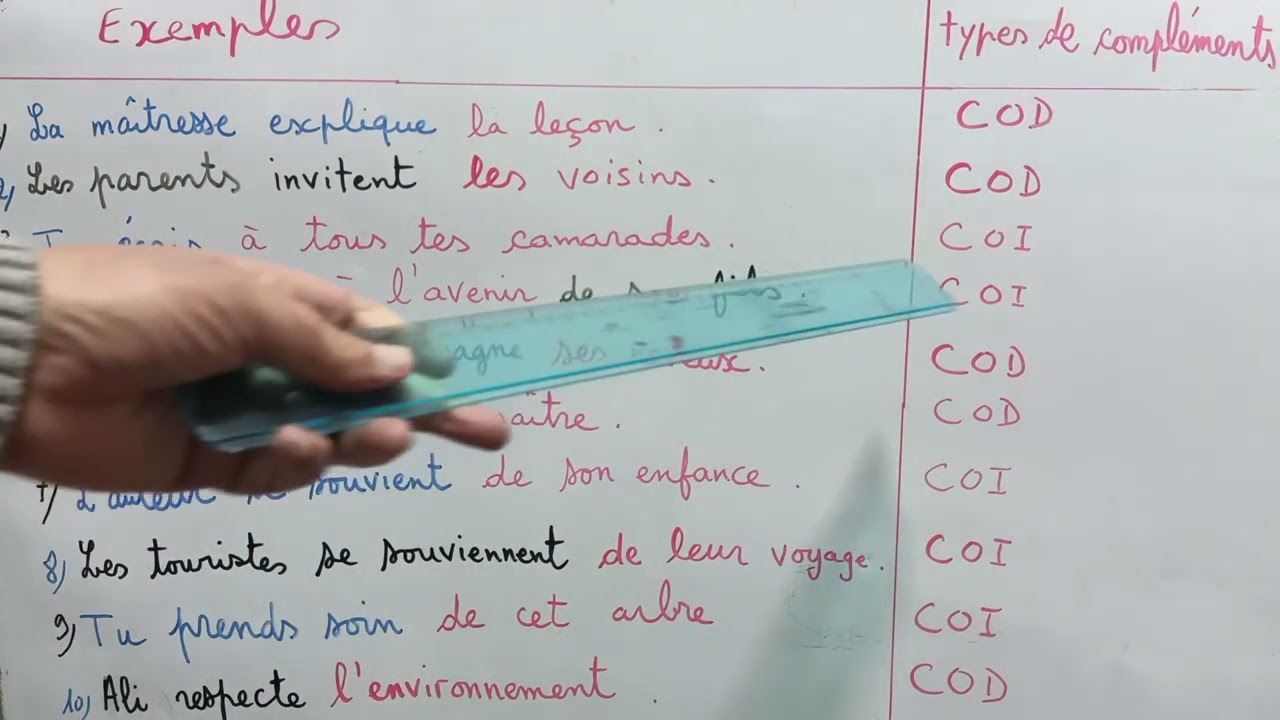 Exemples
types de compléments
1) La maîtresse explique la leçon. COD
2) Les parents invitent les voisins. COD
à tous tes camarades. COI
à l'avenir de fils. COI
ses COD
COD
7) L'auteur se souvient de son enfance. COI
8) Les touristes se souviennent de leur voyage. COI
9) Tu prends soin de cet arbre COI
10) Ali respecte l'environnement. COD